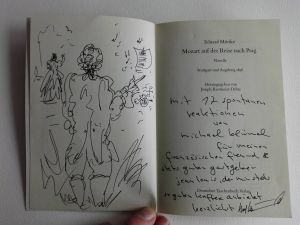 Eduard Mörike
Mozart auf der Reise nach Prag
Novelle
Stuttgart und Augsburg 1856
Herausgegeben von
Joseph Kiermeier-Debre
mit 12 spontanen
reaktionen
von
michael
für meinen
französischen freund &
guten gastgeber
jean louis, der
so guten kaffee anbietet
herzlichst
Deutscher Taschenbuch Verlag